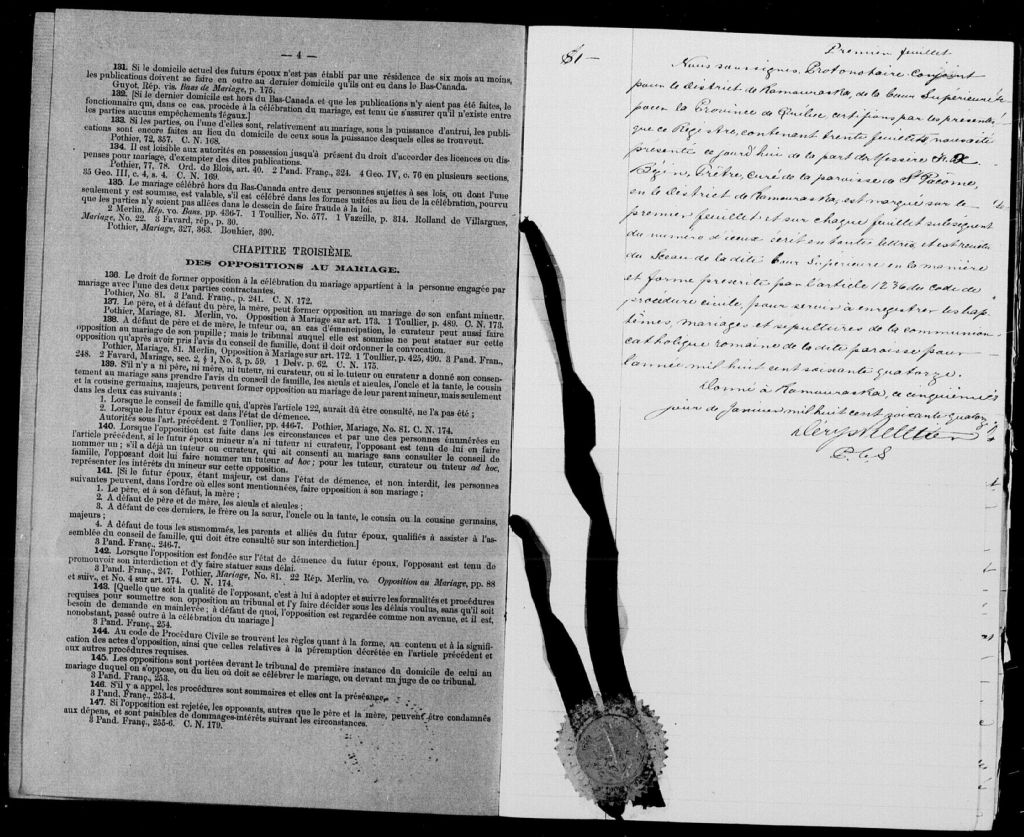 — 4 —
131. Si le domicile actuel des futurs époux n'est pas établi par une résidence de six mois au moins,
les publications doivent se faire en outre au dernier domicile qu'ils ont eu dans le Bas-Canada.
Guyot, Rép. vis. Bans de Mariage, p. 175.
132. [Si le dernier domicile est hors du Bas-Canada et que les publications n'y aient pas été faites, le
fonctionnaire qui, dans ce cas, procède à la célébration du mariage, est tenu de s'assurer qu'il n'existe entre
les parties aucuns empêchements légaux.]
133. Si les parties, ou l'une d'elles, sont, relativement au mariage, sous la puissance d'autrui, les publi-
cations sont encore faites au lieu du domicile de ceux sous la puissance desquels elles se trouvent.
Pothier, 72, 357. C. N. 168.
134. Il est loisible aux autorités en possession jusqu'à présent du droit d'accorder des licences ou dis-
penses pour mariage, d'exempter des dites publications.
Pothier, 77, 78. Ord. de Blois, art. 40. 2 Pand. Franç., 324. 4 Geo. IV, c. 76 en plusieurs sections,
35 Geo. III, c. 4, s. 4. C. N. 169.
135. Le mariage célébré hors du Bas-Canada entre deux personnes sujettes à ses lois, ou dont l'une
seulement y est soumise, est valable, s'il est célébré dans les formes usitées au lieu de la célébration, pourvu
que les parties n'y soient pas allées dans le dessein de faire fraude à la loi.
2 Merlin, Rép. vo. Bans, pp. 436-7. 1 Toullier, No. 577. 1 Vazeille, p. 314. Rolland de Villargues,
Mariage, No. 22. 3 Favard, rép., p. 30.
Pothier, Mariage, 327, 363. Bouhier, 390.
CHAPITRE TROISIÈME.
DES OPPOSITIONS AU MARIAGE.
136. Le droit de former opposition à la célébration du mariage appartient à la personne engagée par
mariage avec l'une des deux parties contractantes.
Pothier, No. 81. 3 Pand. Franç., p. 241. C. N. 172.
137. Le père, et à défaut du père, la mère, peut former opposition au mariage de son enfant mineur.
Pothier, Mariage, 81. Merlin, vo. Opposition à Mariage sur art. 173. 1 Toullier, p. 489. C. N. 173.
138. A défaut de père et de mère, le tuteur ou, au cas d'émancipation, le curateur peut aussi faire
opposition au mariage de son pupille; mais le tribunal auquel elle est soumise ne peut statuer sur cette
opposition qu'après avoir pris l'avis du conseil de famille, dont il doit ordonner la convocation.
Pothier, Mariage, 81. Merlin, Opposition à Mariage sur art. 172. 1 Toullier, p. 425, 490. 3 Pand. Fran.,
248. 2 Favard, Mariage, sec. 2, § 1, No. 3, p. 59. 1 Delv. p. 62. C. N. 175.
139. S'il n'y a ni père, ni mère, ni tuteur, ni curateur, ou si le tuteur ou curateur a donné son consen-
tement au mariage sans prendre l'avis du conseil de famille, les aïeuls et aïeules, l'oncle et la tante, le cousin
et la cousine germains, majeurs, peuvent former opposition au mariage de leur parent mineur, mais seulement
dans les deux cas suivants:
1. Lorsque le conseil de famille qui, d'après l'article 122, aurait dû être consulté, ne l'a pas été;
2. Lorsque le futur époux est dans l'état de démence.
Autorités sous l'art. précédent. 2 Toullier, pp. 446-7. Pothier, Mariage, No. 81. C. N. 174.
140. Lorsque l'opposition est faite dans les circonstances et par une des personnes énumérées en
l'article précédent, si le futur époux mineur n'a ni tuteur ni curateur, l'opposant est tenu de lui en faire
nommer un; s'il a déjà un tuteur ou curateur, qui ait consenti au mariage sans consulter le conseil de
famille, l'opposant doit lui faire nommer un tuteur ad hoc; pour les tuteur, curateur ou tuteur ad hoc,
représenter les intérêts du mineur sur cette opposition.
141. [Si le futur époux, étant majeur, est dans l'état de démence, et non interdit, les personnes
suivantes peuvent, dans l'ordre où elles sont mentionnées, faire opposition à son mariage;
1. Le père, et à son défaut, la mère;
2. A défaut de père et de mère, les aïeuls et aïeules;
3. A défaut de ces derniers, le frère ou la sœur, l'oncle ou la tante, le cousin ou la cousine germains,
majeurs;
4. A défaut de tous les susnommés, les parents et alliés du futur époux, qualifiés à assister à l'as-
semblée du conseil de famille, qui doit être consulté sur son interdiction.]
3 Pand. Franç., 246-7.
142. Lorsque l'opposition est fondée sur l'état de démence du futur époux, l'opposant est tenu de
promouvoir son interdiction et d'y faire statuer sans délai.
3 Pand. Franç., 247. Pothier, Mariage, No. 81. 22 Rép. Merlin, vo. Opposition au Mariage, pp. 88
et suiv., et No. 4 sur art. 174. C. N. 174.
143. [Quelle que soit la qualité de l'opposant, c'est à lui à adopter et suivre les formalités et procédures
requises pour soumettre son opposition au tribunal et l'y faire décider sous les délais voulus, sans qu'il soit
besoin de demande en mainlevée; à défaut de quoi, l'opposition est regardée comme non avenue, et il est,
nonobstant, passé outre à la célébration du mariage.]
3 Pand. Franç., 254.
144. Au code de Procédure Civile se trouvent les règles quant à la forme, au contenu et à la signifi-
cation des actes d'opposition, ainsi que celles relatives à la péremption décrétée en l'article précédent et
aux autres procédures requises.
145. Les oppositions sont portées devant le tribunal de première instance du domicile de celui au
mariage duquel on s'oppose, ou du lieu où doit se célébrer le mariage, ou devant un juge de ce tribunal.
3 Pand. Franç., 253.
146. S'il y a appel, les procédures sont sommaires et elles ont la préséance.
3 Pand. Franç., 253-4.
147. Si l'opposition est rejetée, les opposants, autres que le père et la mère, peuvent être condamnés
aux dépens, et sont passibles de dommages-intérêts suivant les circonstances.
3 Pand. Franç., 255-6. C. N. 179.
$1 —
Premier feuillet
Nous soussignés, Protonotaire Conjoint
pour le District de Kamouraska, de la Cour Supérieure
pour la Province de Québec, certifions par les présentes
que ce Registre, contenant trente feuillets, nous a été
présenté ce jourd'hui de la part de Messire
Bégin, Prêtre, Curé de la paroisse de St Pacôme,
en le District de Kamouraska, est marqué sur le
premier feuillet et sur chaque feuillet subséquent
du numéro d'iceux écrit en toutes lettres et est revêtu
du Sceau de la dite Cour Supérieure en la manière
et forme prescrite par l'article 1236 du code de
procédure civile, pour servir à enregistrer les bap-
têmes, mariages et sépultures de la communion
catholique romaine de la dite paroisse pour
l'année mil huit cent soixante quatorze.
Donné à Kamouraska, ce cinquième
jour de Janvier mil huit cent soixante quatorze
P. C. S